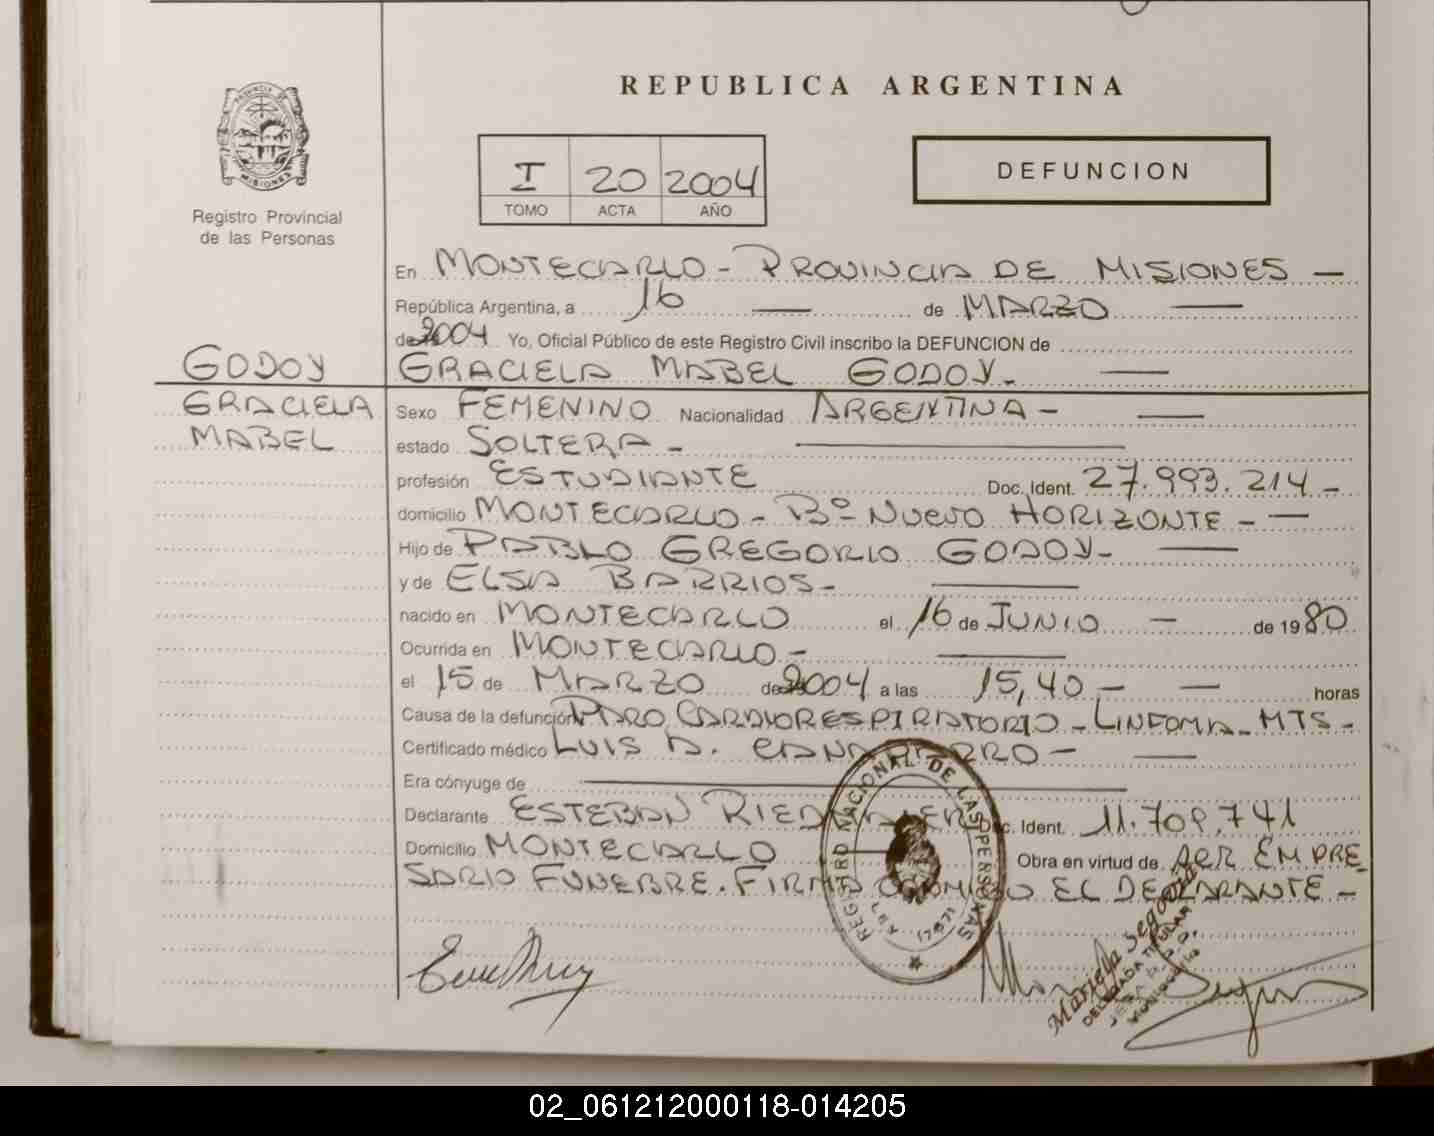 REPUBLICA ARGENTINA
PROVINCIA DE
MISIONES
Registro Provincial
de las Personas
I 20 2004
TOMO ACTA AÑO
DEFUNCION
En MONTECARLO - PROVINCIA DE MISIONES -
República Argentina, a 16 - de MARZO -
de 2004 Yo, Oficial Público de este Registro Civil inscribo la DEFUNCION de
GRACIELA MABEL GODOY -
GODOY
GRACIELA
MABEL
Sexo FEMENINO Nacionalidad ARGENTINA -
estado SOLTERA -
profesión ESTUDIANTE Doc. Ident. 27.993.214 -
domicilio MONTECARLO - Bº NUEVO HORIZONTE -
Hijo de PABLO GREGORIO GODOY -
y de ELSA BARRIOS -
nacido en MONTECARLO el 16 de JUNIO - de 1980
Ocurrida en MONTECARLO -
el 15 de MARZO de 2004 a las 15,40 - horas
Causa de la defunción PARO CARDIORESPIRATORIO - LINFOMA - MTS -
Certificado médico LUIS A. -
Era cónyuge de
Declarante ESTEBAN Doc. Ident. 11.709.741
Domicilio MONTECARLO Obra en virtud de SER EMPRE
SARIO FUNEBRE. FIRMA CONMIGO EL DECLARANTE -
REGISTRO NACIONAL DE LAS PERSONAS
LEY 17671
Mariela Segovia
DELEGADA TITULAR
02_061212000118-014205